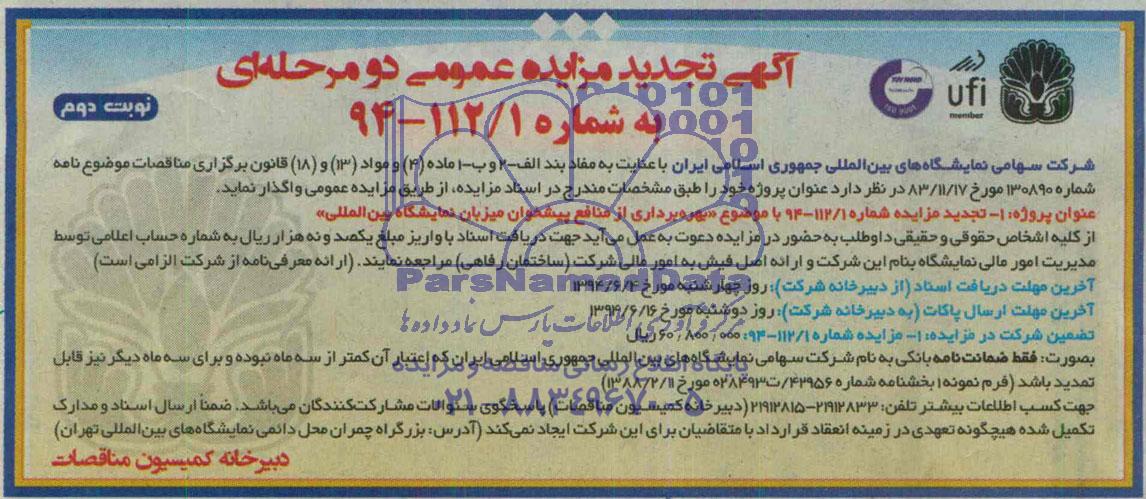 آگهی تجدید مزایده عمومی دو مرحله‌ای
به شماره ۹۴-۱۱۲/۱
نوبت دوم
TUV NORD
ISO 9001
ufi
member
شرکت سهامی نمایشگاه‌های بین‌المللی جمهوری اسلامی ایران با عنایت به مفاد بند الف-۲ و ب-۱ ماده (۴) و مواد (۱۳) و (۱۸) قانون برگزاری مناقصات موضوع نامه
شماره ۱۳۰۸۹۰ مورخ ۸۳/۱۱/۱۷ در نظر دارد عنوان پروژه خود را طبق مشخصات مندرج در اسناد مزایده، از طریق مزایده عمومی واگذار نماید.
عنوان پروژه: ۱- تجدید مزایده شماره ۹۴-۱۱۲/۱ با موضوع «بهره‌برداری از منافع پیشخوان میزبان نمایشگاه بین‌المللی»
از کلیه اشخاص حقوقی و حقیقی داوطلب به حضور در مزایده دعوت به عمل می‌آید جهت دریافت اسناد با واریز مبلغ یکصد و نه هزار ریال به شماره حساب اعلامی توسط
مدیریت امور مالی نمایشگاه بنام این شرکت و ارائه اصل فیش به امور مالی شرکت (ساختمان رفاهی) مراجعه نمایند. (ارائه معرفی‌نامه از شرکت الزامی است)
آخرین مهلت دریافت اسناد (از دبیرخانه شرکت): روز چهارشنبه مورخ ۱۳۹۴/۶/۴
آخرین مهلت ارسال پاکات (به دبیرخانه شرکت): روز دوشنبه مورخ ۱۳۹۴/۶/۱۶
تضمین شرکت در مزایده: ۱- مزایده شماره ۹۴-۱۱۲/۱: ۶۰/۸۰۰/۰۰۰ ریال
بصورت: فقط ضمانت‌نامه بانکی به نام شرکت سهامی نمایشگاه‌های بین‌المللی جمهوری اسلامی ایران که اعتبار آن کمتر از سه ماه نبوده و برای سه ماه دیگر نیز قابل
تمدید باشد (فرم نمونه ۱ بخشنامه شماره ۴۲۹۵۶/ت۲۸۴۹۳ه مورخ ۱۳۸۸/۲/۱۱)
جهت کسب اطلاعات بیشتر تلفن: ۲۱۹۱۲۸۳۳-۲۱۹۱۲۸۱۵ (دبیرخانه کمیسیون مناقصات) پاسخگوی سئوالات مشارکت‌کنندگان می‌باشد. ضمناً ارسال اسناد و مدارک
تکمیل شده هیچگونه تعهدی در زمینه انعقاد قرارداد با متقاضیان برای این شرکت ایجاد نمی‌کند (آدرس: بزرگراه چمران محل دائمی نمایشگاه‌های بین‌المللی تهران)
دبیرخانه کمیسیون مناقصات
ParsNamadData
مرکز فرآوری اطلاعات پارس نماد داده ها
پایگاه اطلاع رسانی مناقصه و مزایده
۰۲۱-۸۸۳۴۹۶۷۰-۵